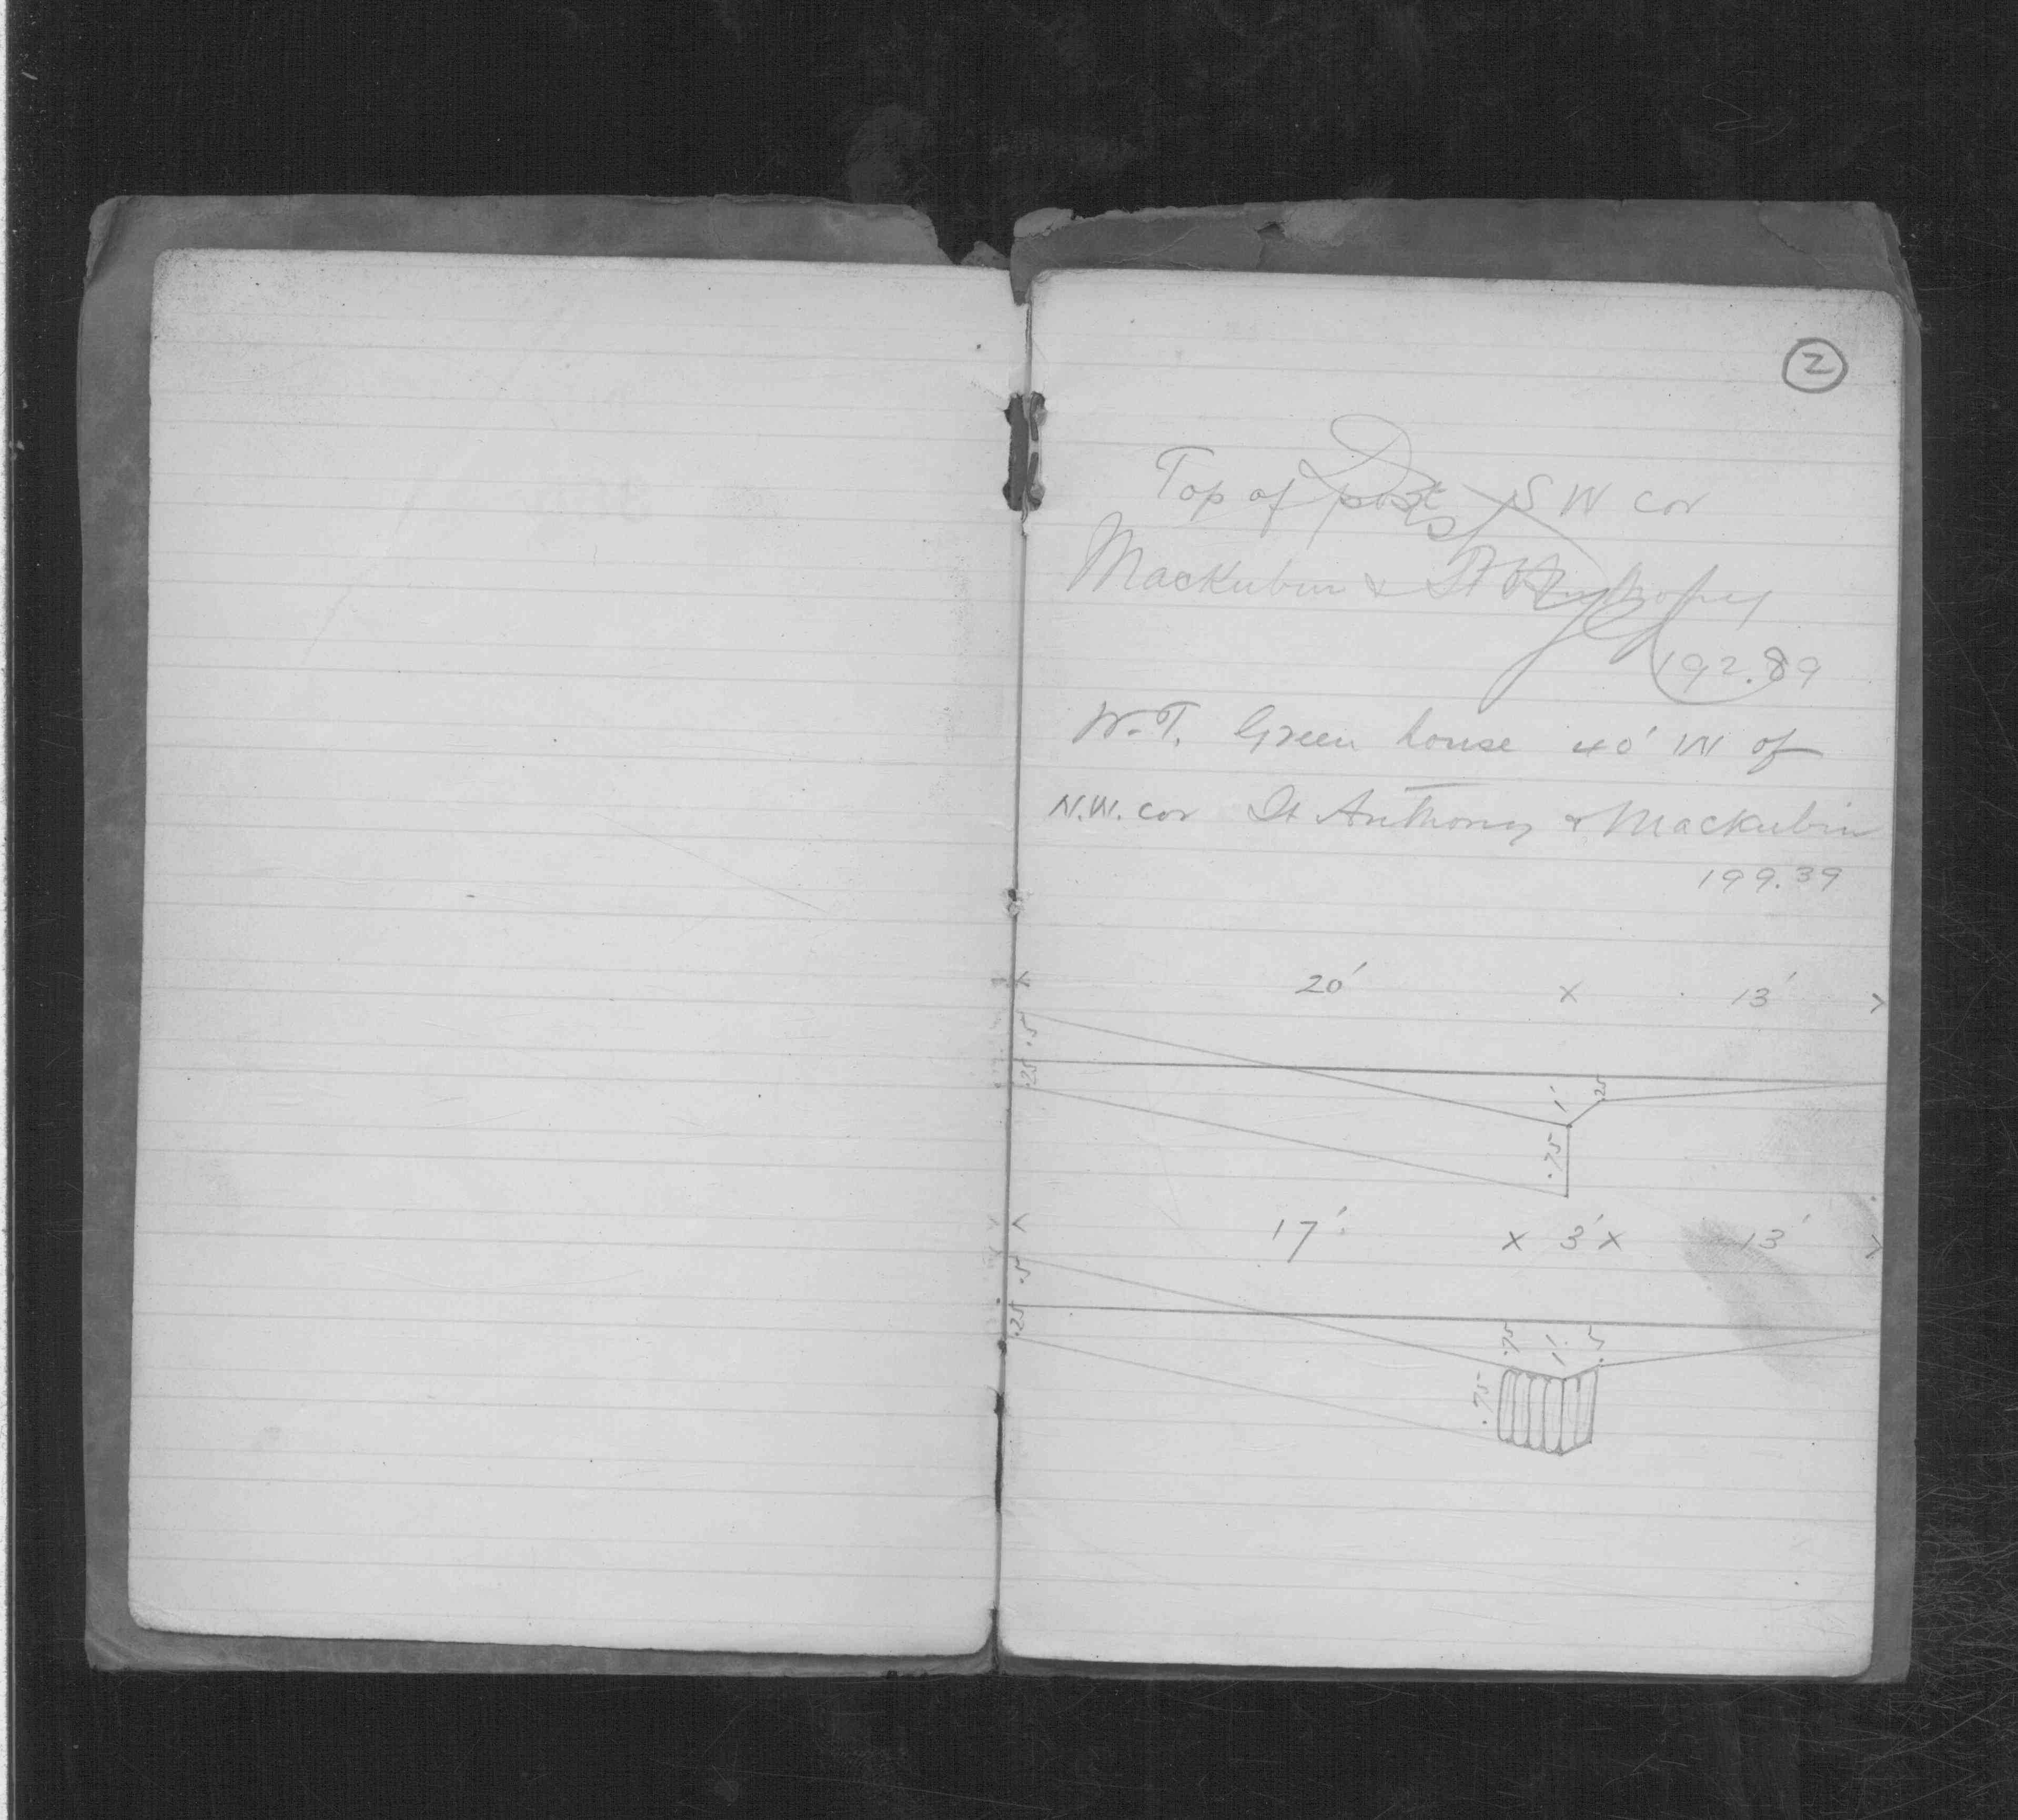 2
Top of post S W cor
Mackubin & St Anthony
192.89
W.T. Green house 40' W of
N.W. cor St Anthony & Mackubin
199.39
20' x 13'
.5
.25
1'
.25
.75
17' x 3' x 13'
.5
.25
.75 1' .5
.75